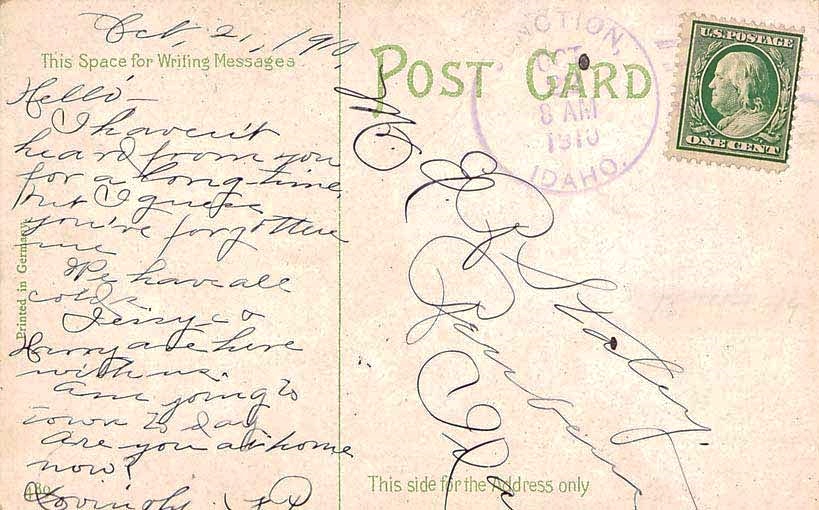 Oct, 21, 1910,
This Space for Writing Messages
Hello —
I haven't
heard from you
for a long time,
but I guess
you've forgotten
me
We have all
colds
&
Harry are here
with us.
am going to
town to day
are you at home
now?
Lovingly
Printed in Germany
POST CARD
JUNCTION,
OCT
8 AM
1910
IDAHO.
U.S. POSTAGE
ONE CENT
This side for the Address only